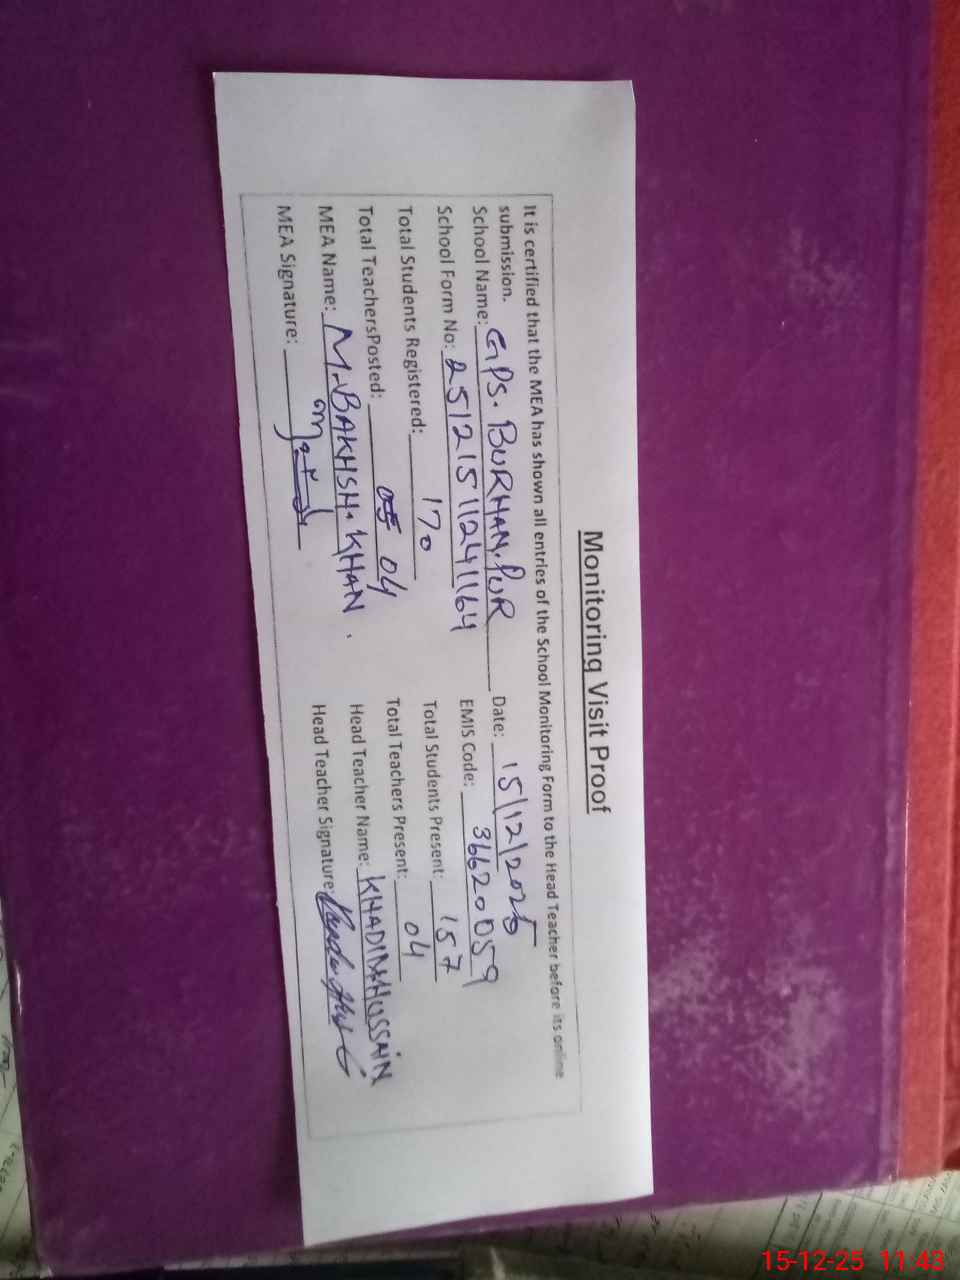 Monitoring Visit Proof
It is certified that the MEA has shown all entries of the School Monitoring Form to the Head Teacher before its online
submission.
School Name: GPS. BURHAN. PUR Date: 15/12/2025
School Form No: 25121511241164 EMIS Code: 36620059
Total Students Registered: 170 Total Students Present: 157
Total TeachersPosted: 05 04 Total Teachers Present: 04
MEA Name: M. BAKHSH. KHAN. Head Teacher Name: KHADIM HUSSAIN
MEA Signature: Head Teacher Signature:
15-12-25 11:43